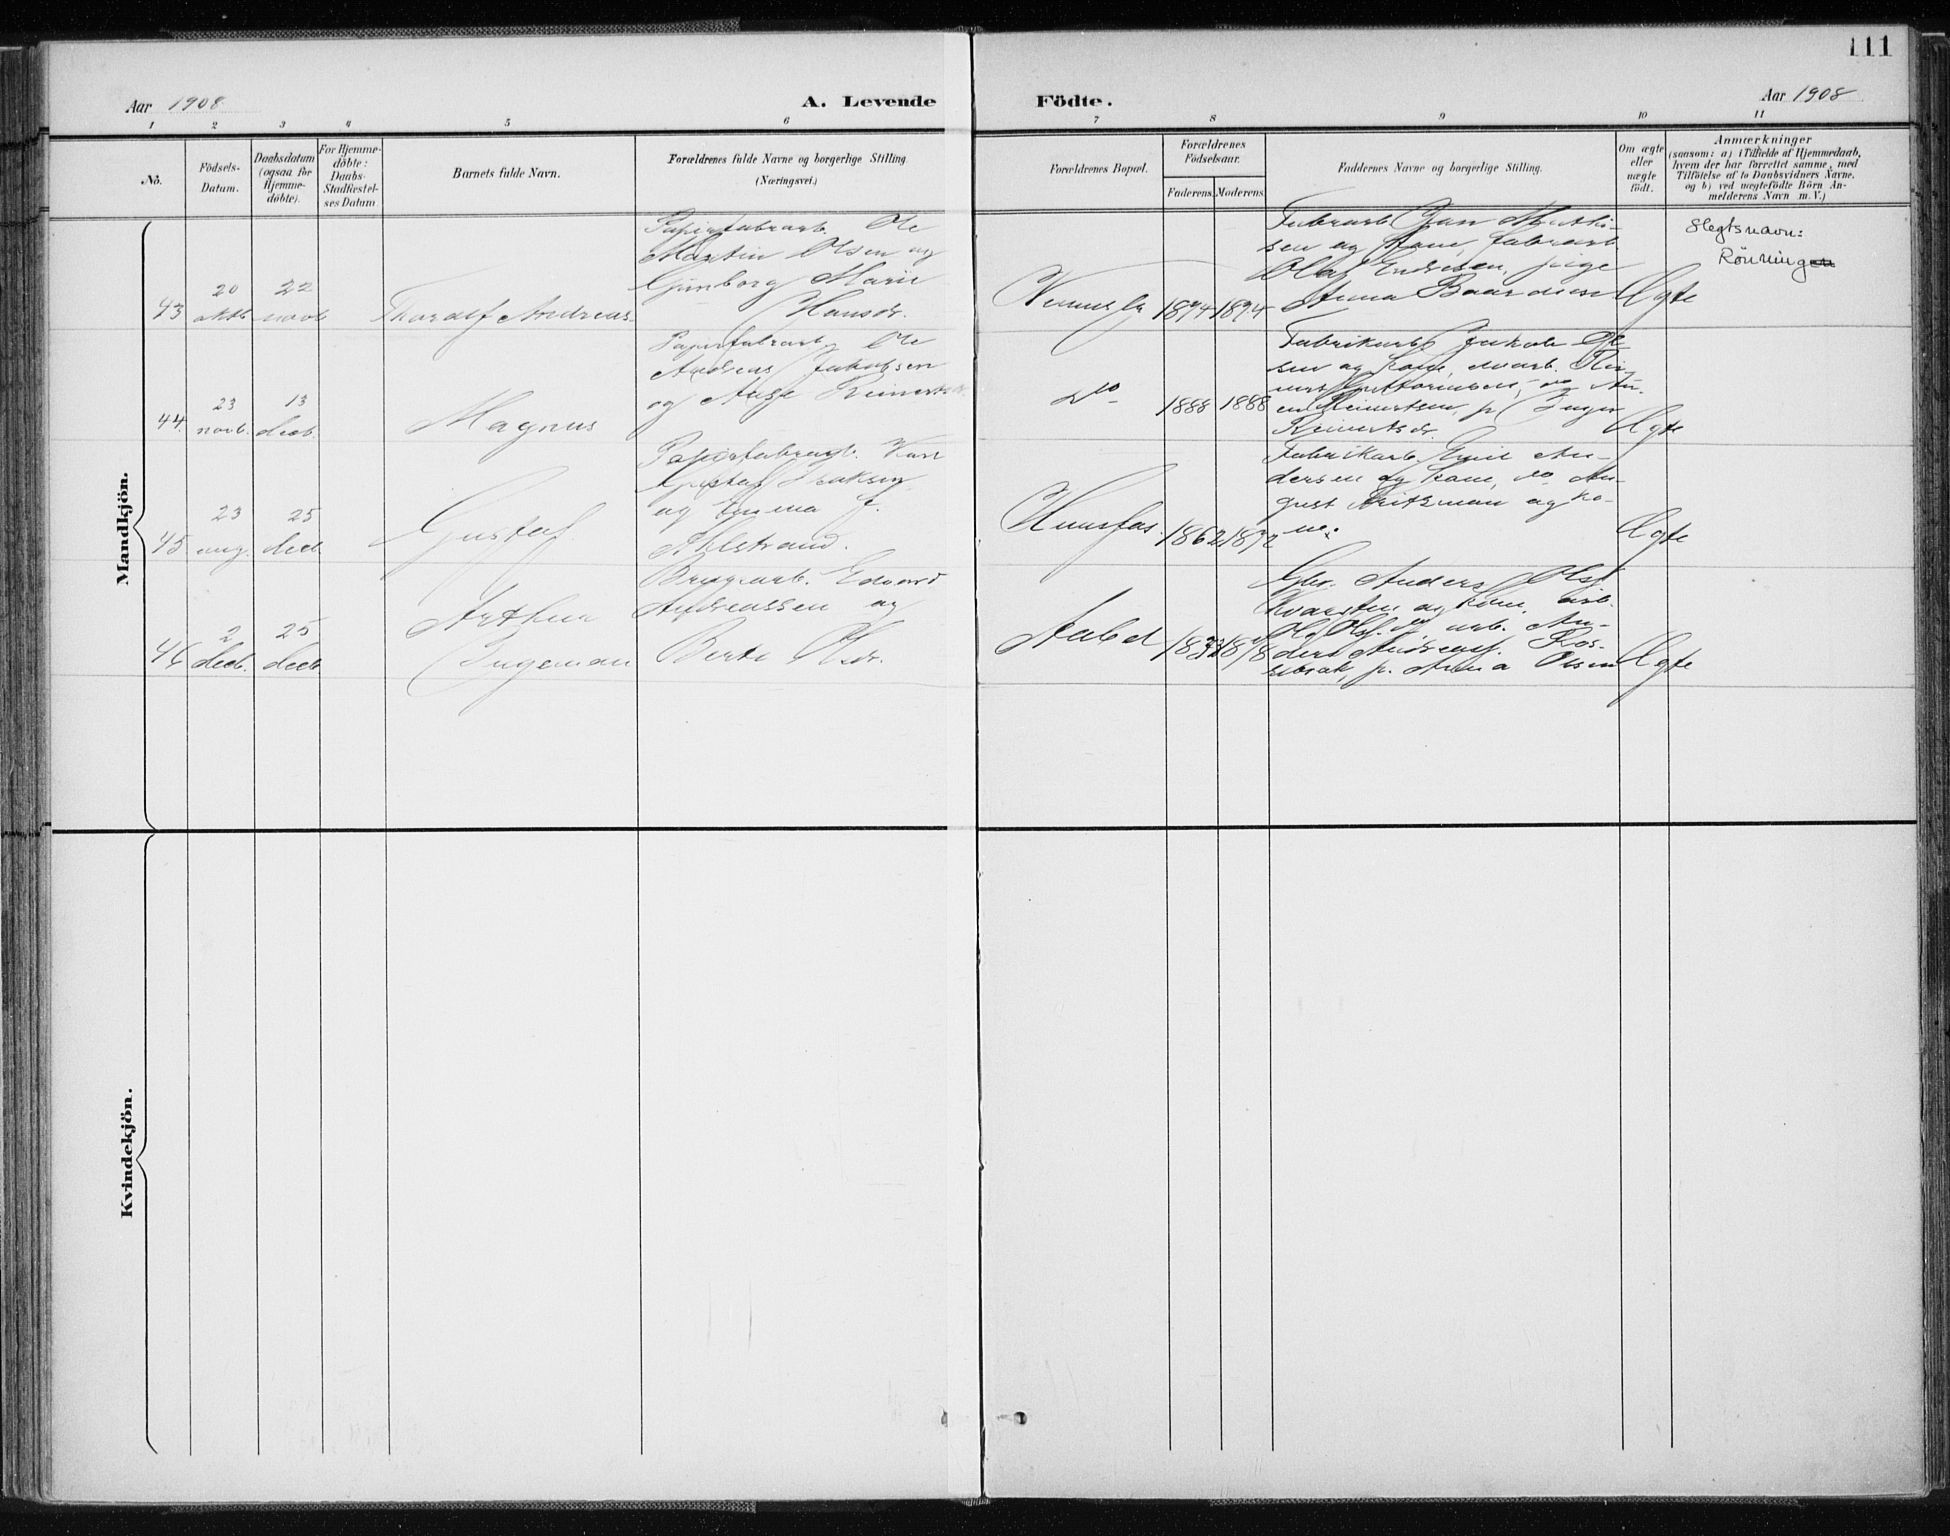 111
Aar 1908
A. Levende Födte.
Aar 1908
1 2 3 4 5 6 7 8 9 10 11
No.
Födsels-
Datum.
Daabsdatum
(ogsaa for
Hjemme-
döbte).
For Hjemme-
döbte:
Daabs-
Stadfæstel-
ses Datum
Barnets fulde Navn.
Forældrenes fulde Navne og borgerlige Stilling.
(Næringsvei.)
Forældrenes Bopæl.
Forældrenes
Födselsaar.
Faderens. Moderens.
Faddernes Navne og borgerlige Stilling.
Om ægte
eller
uægte
født.
Anmærkninger
(saasom: a) i Tilfælde af Hjemmedaab,
hvem der har forrettet samme, med
Tilföielse af to Daabsvidners Navne.
og b) ved uægtefödte Börn An-
melderens Navn m. V.)
Mandkjön.
43
20
oktb
22
novb
Tharalf Andreas
Papirfabrarb. Ole
Martin Olsen og
Gunborg Marie
Hansdr.
Vennesla
1874 1874
Fabrarb
sen og kone, fabrarb
Olaf Endresen, pige
Anna Baardsen
Ægte
Slegtsnavn:
Rönningen
44.
23
novb.
13
decb.
Magnus
Papirfabrarb. Ole
Andreas Jakobsen
og Aase Reinertsdr
Do
1888 1888
Fabrikarb Jakob Ol-
sen og kone,
Reinertsen, p. Inger
Reinertsdr.
Ægte
45
23
aug.
25
decb
Gustaf
Papirfabrarb. Karl
Gustaf
og Emma f.
Ahlstrand.
Hunsfos.
1862 1872
Fabrikarb. Emil An-
dersen og kone, do Au-
gust og ko-
ne.
Ægte
46
2
decb.
25
decb
Arthur
Ingeman
Brugarb. Edvard
Andreassen og
Berte Olsdr.
Aabel
1878
Gbr. Anders Olsf.
Kvarsten og kone, arb.
Ole Olsf. do arb. An-
ders Andreasf. Ros-
p. Anna Olsen
Ægte
Kvindekjön.